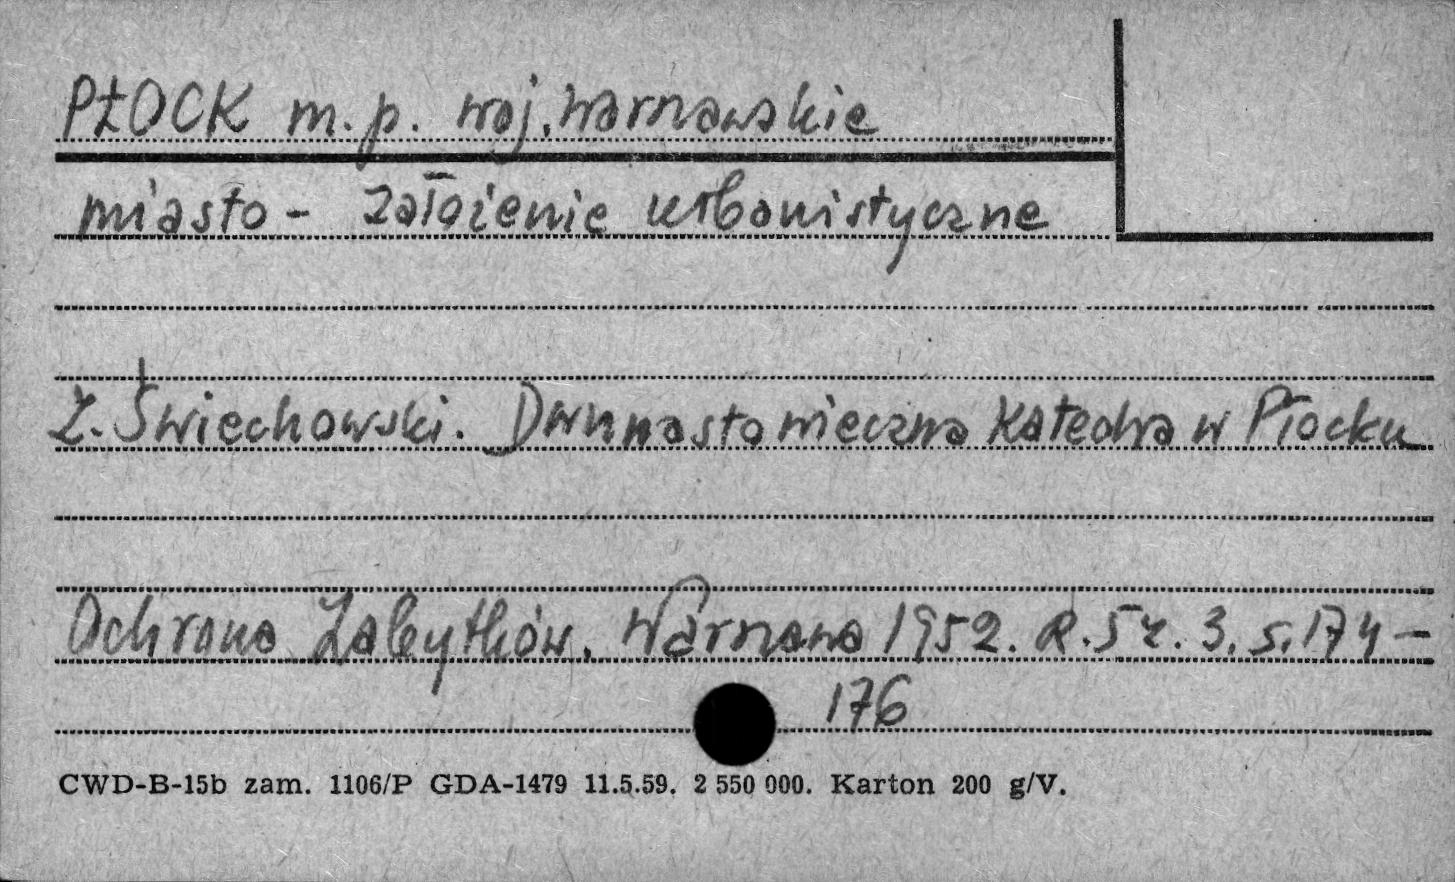 PŁOCK m.p. woj. warszawskie
miasto - założenie urbanistyczne
Z. Świechowski. Dwunastowieczna Katedra w Płocku
Ochrona Zabytków. Warszawa 1952. R. 5 z. 3. s. 174 -
176
CWD-B-15b zam. 1106/P GDA-1479 11.5.59. 2 550 000. Karton 200 g/V.